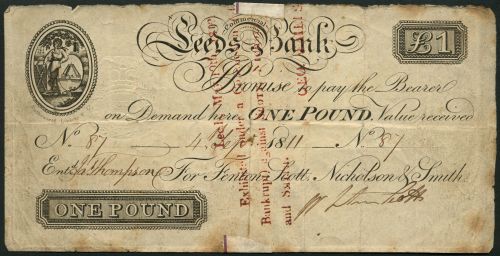 Commercial
Leeds Bank
£1
I Promise to pay the Bearer
on Demand here ONE POUND. Value received
No. 87 — 4 Sept. 1811 — No. 87
Entd. Thompson For Fenton, Scott, Nicholson & Smith.
ONE POUND
Exhibited under a
Bankrupt against
and Smith